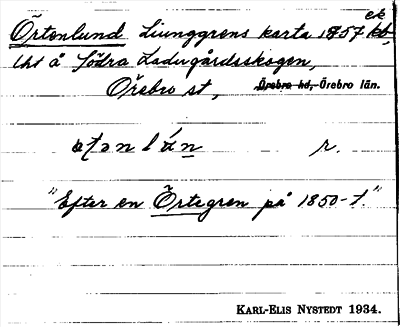 Örtenlund Liunggrens karta 1857 ek
lht å Södra Ladugårdsskogen,
Örebro st, Örebro hd, Örebro län.
r.
"Efter en Örtegren på 1850-t."
KARL-ELIS NYSTEDT 1934.